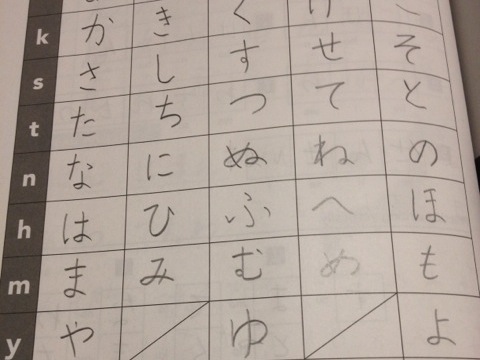 k か き く け こ
s さ し す せ そ
t た ち つ て と
n な に ぬ ね の
h は ひ ふ へ ほ
m ま み む め も
y や ゆ よ